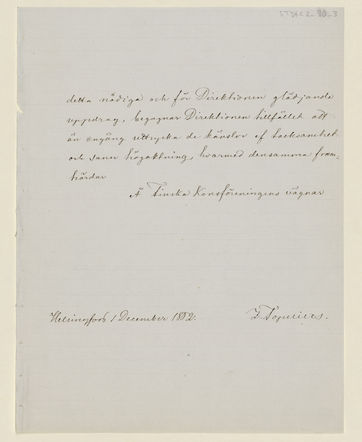 detta nådiga och för Direktionen glädjande
uppdrag, begagnar Direktionen tillfället att
än engång uttrycka de känslor af tacksamhet
och sann högaktning, hvarmed densamma fram-
härdar
Å Finska Konstföreningens vägnar
Helsingfors 1 December 1882.
Z. Topelius.